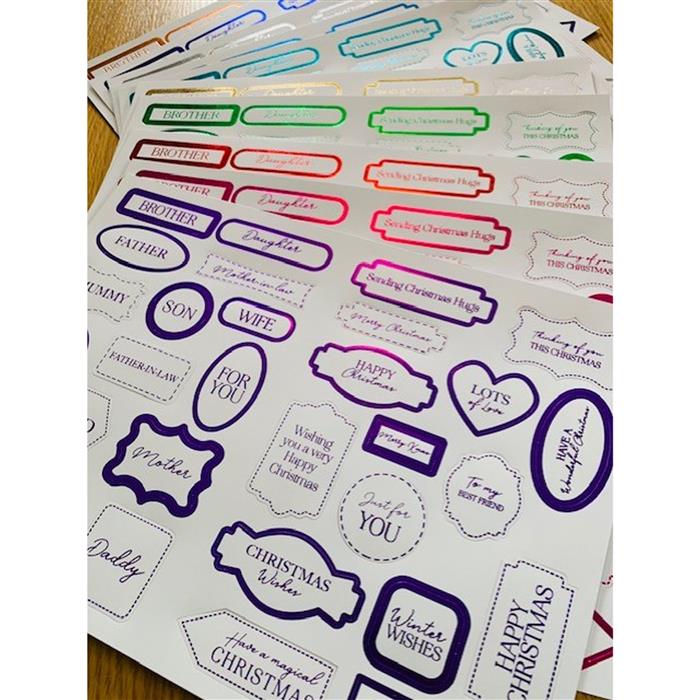 BROTHER
Daughter
BROTHER
Daughter
Sending Christmas Hugs
LOTS
BROTHER
Daughter
Sending Christmas Hugs
Thinking of you
THIS CHRISTMAS
BROTHER
Daughter
Sending Christmas Hugs
Thinking of you
THIS CHRISTMAS
BROTHER
Daughter
Sending Christmas Hugs
Thinking of you
THIS CHRISTMAS
BROTHER
Daughter
Sending Christmas Hugs
Thinking of you
THIS CHRISTMAS
FATHER
Mother-in-law
Merry Christmas
UMMY
SON
WIFE
FATHER-IN-LAW
FOR
YOU
HAPPY
Christmas
LOTS
of Love
HAVE A
Wonderful Christmas
Mother
Wishing
you a very
Happy
Christmas
Merry Xmas
Just for
YOU
To my
BEST FRIEND
Daddy
CHRISTMAS
Wishes
Winter
WISHES
HAPPY
CHRISTMAS
Have a magical
CHRISTMAS